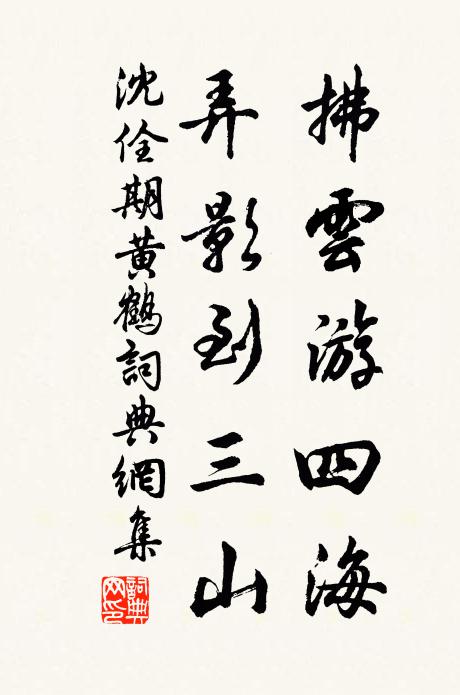 拂雲游四海
弄影到三山
沈佺期黃鶴詞典網集
詞典
网印